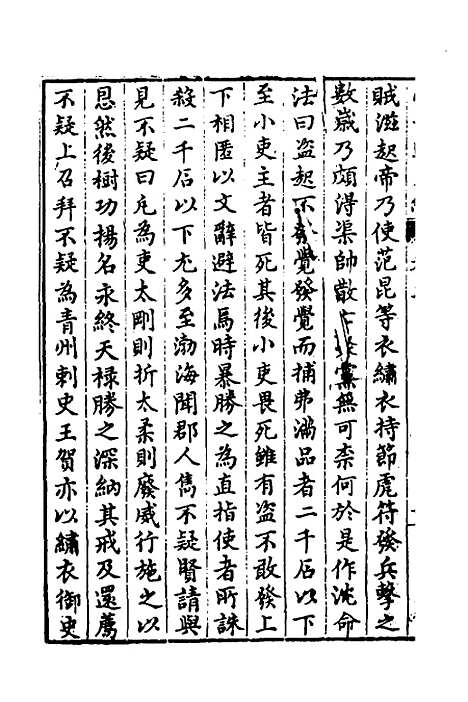 賊滋起帝乃使范昆等衣繡衣持節虎符發兵擊之
數歳乃頗得渠帥散 黨無可柰何於是作沈命
法曰盗起不發覺發覺而捕弗滿品者二千石以下
至小吏主者皆死其後小吏畏死雖有盗不敢發上
下相匿以文辭避法焉時暴勝之為直指使者所誅
殺二千石以下尤多至渤海聞郡人雋不疑賢請與
見不疑曰凡為吏太剛則折太柔則廢威行施之以
恩然後樹功揚名永終天禄勝之深納其戒及還薦
不疑上召拜不疑為青州刺史王賀亦以繡衣御史